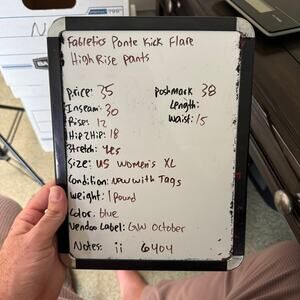 Fabletics Ponte Kick Flare
High Rise pants
price: 35
postmark 38
Inseam: 30
Length:
Rise: 12
waist: 15
Hip 2 Hip: 18
Stretch: yes
Size: US Women's XL
Condition: New with Tags
weight: 1 pound
Color: blue
Vendoo Label: GW October
Notes: ii 6404